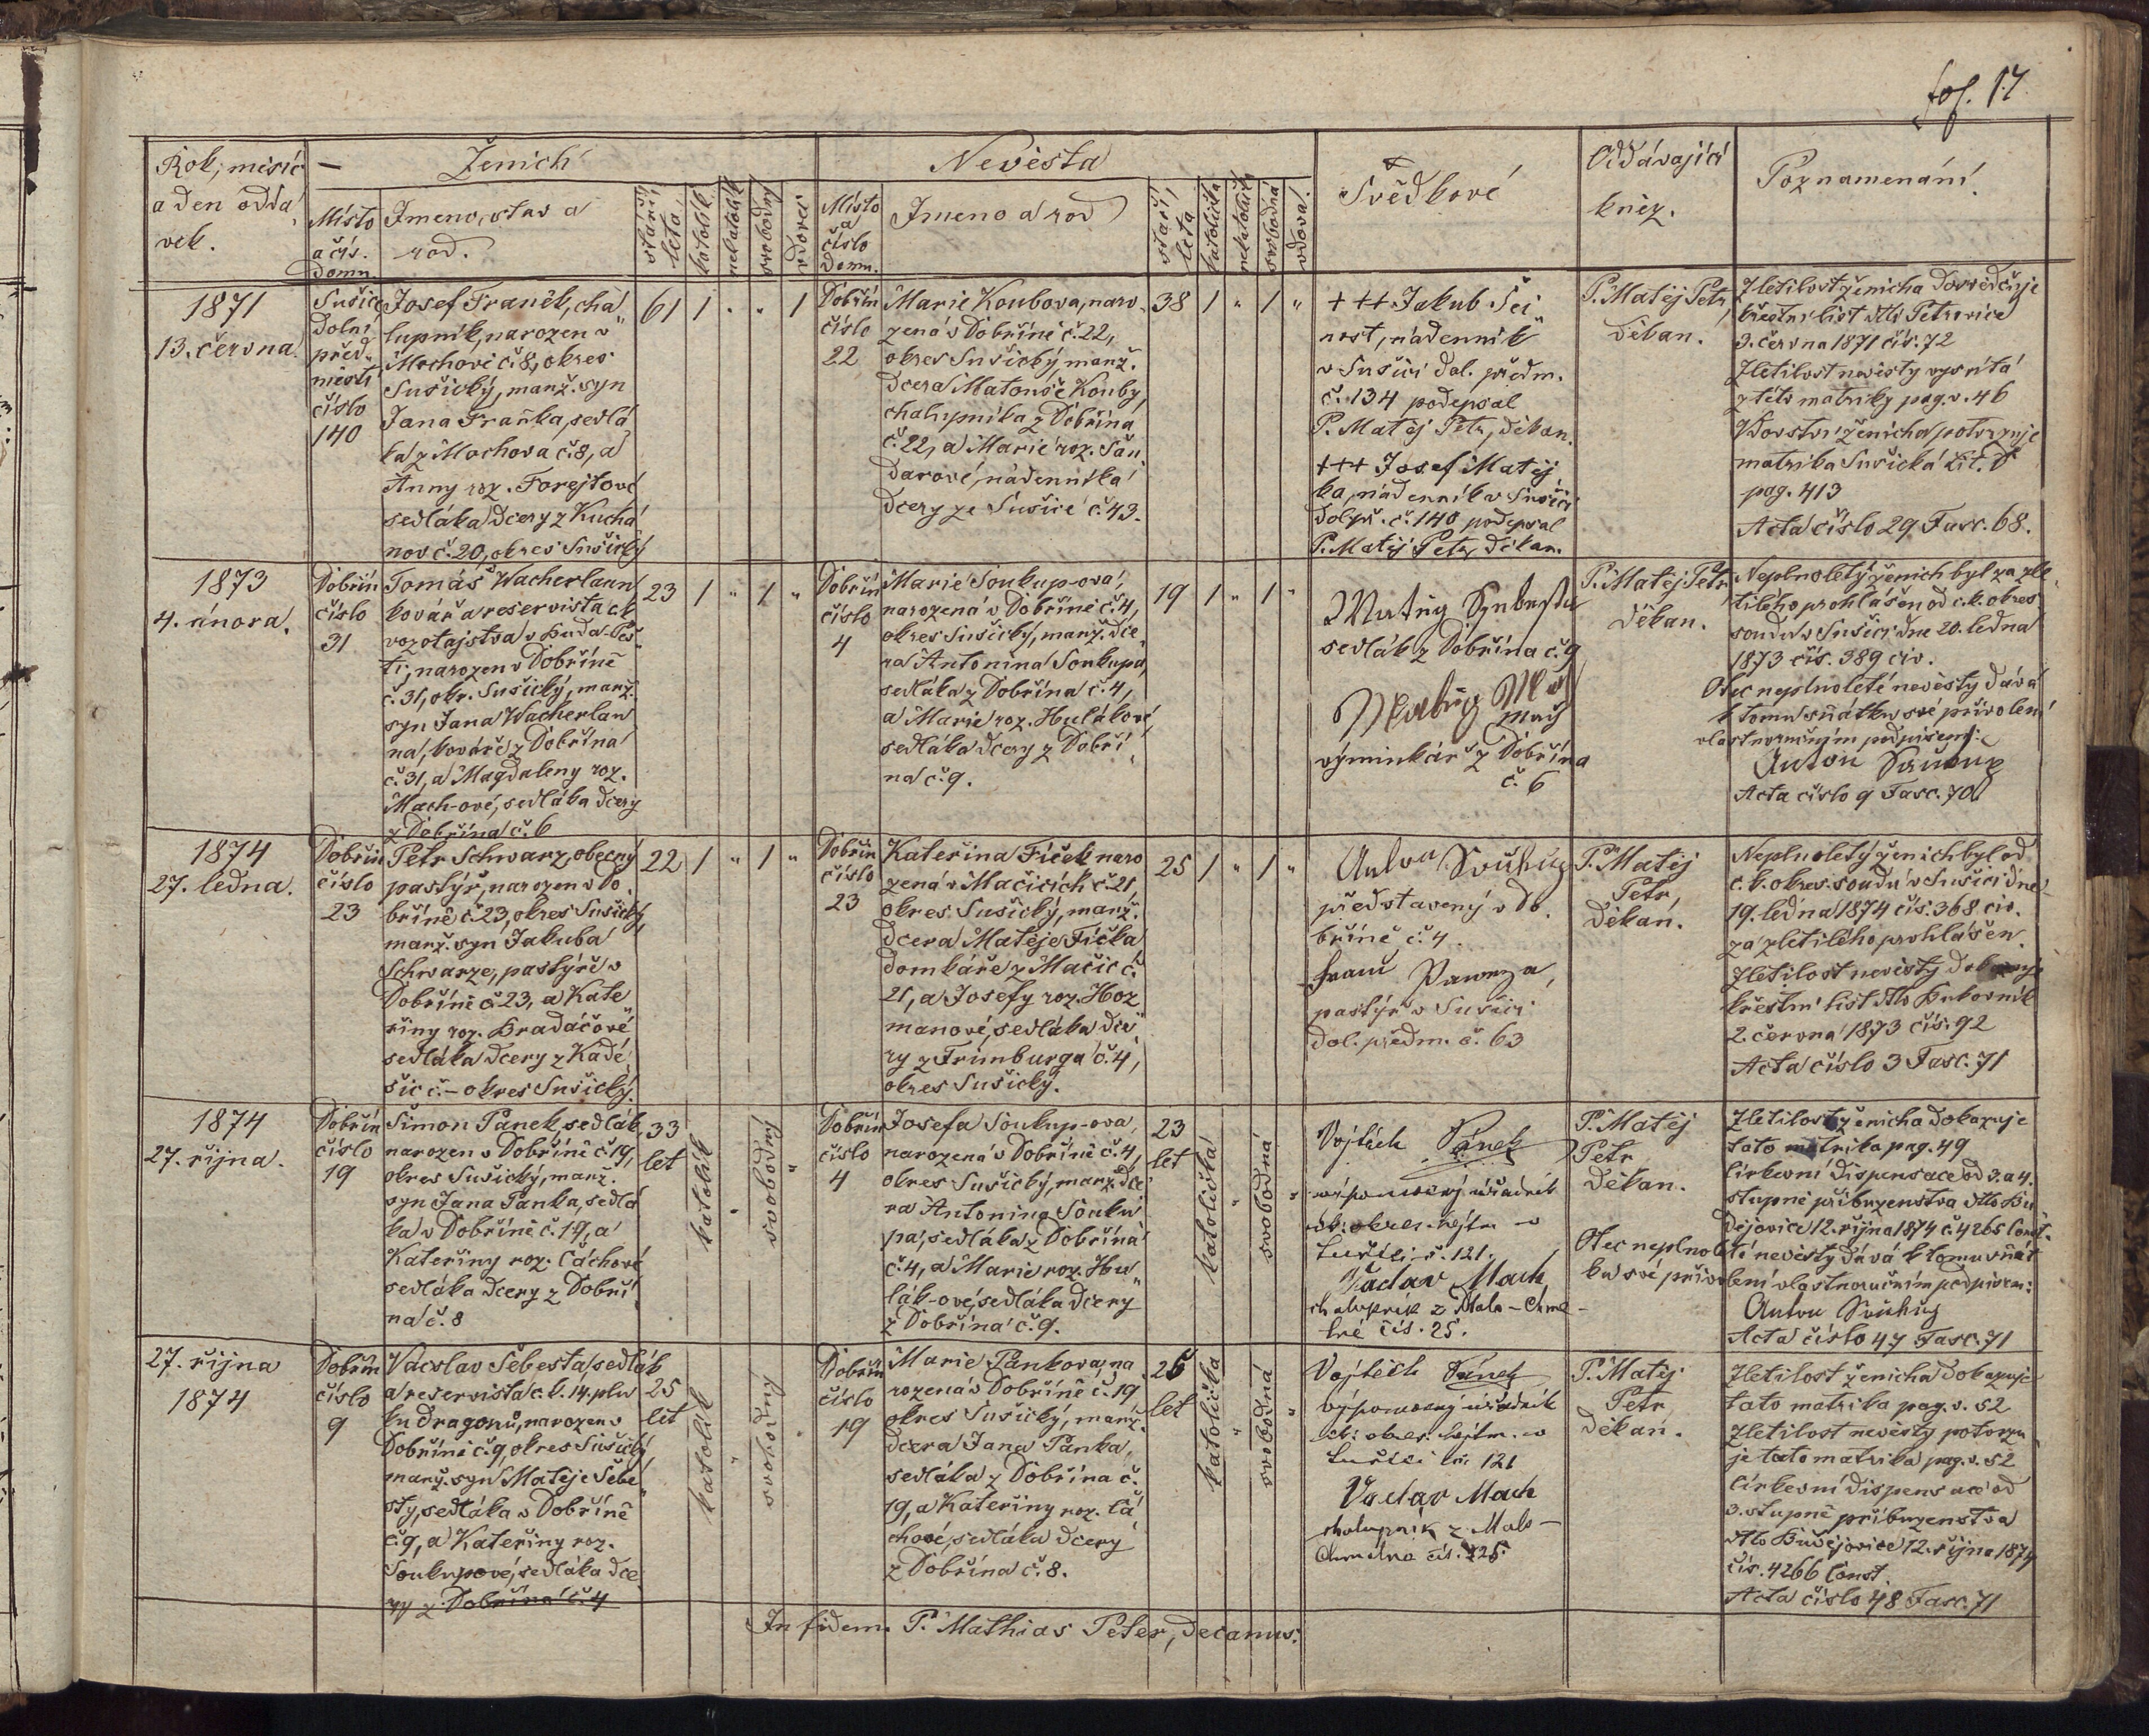 fol. 17
Rok, měsíc
a den odda
vek.
Ženich
Nevěsta
Svědkové
Oddávající
kněz.
Poznamenání.
Místo
a čís.
domu.
Jmeno, stav a
rod.
stáří,
léta,
katolík
nekatolík
svobodný
vdovec
Místo
a
číslo
domu.
Jmeno a rod
stáří,
léta
katolička
nekatolička
svobodná
vdova.
1871
13. června.
Sušice
dolní
před„
městí
číslo
140
Josef Franěk, cha
lupník, narozen v
Mochově č. 8, okres
Sušický, manž. syn
Jana Fraňka, sedlá
ka z Mochova č. 8, a
Anny roz. Forejtové
sedláka dcery z Kuchá
nov č. 20, okres Sušický
61
1
"
"
1
Dobřín
číslo
22
Marie Koubova, naro
zená v Dobříně č. 22,
okres Sušický, manž.
dcera Matouše Kouby,
chalupníka z Dobřína
č. 22, a Marie roz. Šan
darové, nádenníka
dcery ze Sušice č. 43.
38
1
"
1
"
+++ Jakub Šei
nost, nádenník
v Sušici dol. předm.
č. 134 podepsal
P. Matěj Petr, děkan.
+++ Josef Matěj
ka, nádenník v Sušici
dol. př. č. 140 podepsal
P. Matěj Petr, děkan.
P. Matěj Petr,
děkan.
Zletilost ženicha dosvědčuje
křestní list dtto Petrovice
9. června 1871 čís. 72
Zletilost nevěsty vysvítá
z této matriky pag. v. 46
Vdovství ženicha potvrzuje
matrika Sušická Lit.
pag. 413
Acta číslo 29 Fasc. 68.
1873
4. února.
Dobřín
číslo
31
Tomáš Wacherlaun
kovář a reservista ck.
vozotajstva v Buda-Peš
ti, narozen v Dobříně
č. 31, okr. Sušický, manž.
syn Jana Wacherlau
na, kováře z Dobřína
č. 31, a Magdaleny roz.
Mach-ové, sedláka dcery
z Dobřína č. 6
23
1
"
1
"
Dobřín
číslo
4
Marie Soukup-ova,
narozená v Dobříně č. 4,
okres Sušický, manž. dce
ra Antonina Soukupa,
sedláka z Dobřína č. 4,
a Marie roz. Hulákové,
sedláka dcery z Dobří
na č. 9.
19
1
"
1
"
sedlák z Dobřína č. 9
výminkář z Dobřína
č. 6
P. Matěj Petr
děkan.
Neplnoletý ženich byl za zle
tilého prohlášen od c.k. okres.
soudu v Sušici dne 20. ledna
1873 čís. 389 civ.
Otec neplnoleté nevěsty dává
k tomu sňatku své přivolení
vlastnoručním podpisem:
Anton Soukup
Acta číslo 9 Fasc. 70
1874
27. ledna.
Dobřín
číslo
23
Petr Schwarz, obecný
pastýř, narozen v Do
bříně č. 23, okres Sušický,
manž. syn Jakuba
Schwarze, pastýře v
Dobříně č. 23, a Kate
řiny roz. Bradáčové
sedláka dcery z Kadě
šic č. – okres Sušický.
22
1
"
1
"
Dobřín
číslo
23
Kateřina Fiček naro
zená v Mačicích č. 21,
okres Sušický, manž.
dcera Matěje Fička
domkáře z Mačic č.
21, a Josefy roz. Hoz
manové, sedláka dce
ry z Frimburga č. 4,
okres Sušický.
25
1
"
1
"
Anton Soukup
představený v Do
bříně č. 4.
pastýř v Sušici
dol. předm. č. 63
P. Matěj
Petr,
děkan.
Neplnoletý ženich byl od
c. k. okres. soudu v Sušici dne
19. ledna 1874 čís. 368 civ.
za zletilého prohlášen.
Zletilost nevěsty dokazuje
křestní list dtto Bukovník
2. června 1873 čís. 92
Acta číslo 3 Fasc. 71
1874
27. října.
Dobřín
číslo
19
Šimon Pánek, sedlák,
narozen v Dobříně č. 19,
okres Sušický, manž.
syn Jana Panka, sedlá
ka v Dobříně č. 19, a
Kateřiny roz. Čáchové
sedláka dcery z Dobří
na č. 8
33
let
katolík
"
svobodný
"
Dobřín
číslo
4
Josefa Soukup-ova,
narozená v Dobříně č. 4,
okres Sušický, manž. dce
ra Antonina Souku
pa, sedláka z Dobřína
č. 4, a Marie roz. Hu„
lák-ové, sedláka dcery
z Dobřína č. 9.
23
let
katolická
"
svobodná
"
Vojtěch Pánek
výpomocný úřadník
ck. okres. hejtm. v
Sušici č. 121.
Václav Mach
chalupník z Malo-Chme
lné čís. 25.
P. Matěj
Petr
děkan.
Zletilost ženicha dokazuje
tato matrika pag. 49
Církevní dispensace od 3. a 4.
stupně příbuzenstva dtto Bu
dějovice 12. října 1874 č. 4265 Const.
Otec neplnoleté nevěsty dává k tomu sňat
ku své přivolení vlastnoručním podpisem:
Anton Soukup
Acta číslo 47 Fasc. 71
27. října
1874
Dobřín
číslo
9
Vácslav Šebesta, sedlák
a reservista c. k. 14. plu
ku dragonů, narozen v
Dobříně č. 9, okres Sušický,
manž. syn Matěje Šebe
sty, sedláka v Dobříně
č. 9, a Kateřiny roz.
Soukupové, sedláka dce
ry z Dobřína č. 4
25
let
katolík
"
svobodný
"
Dobřín
číslo
19
Marie Pankova, na
rozená v Dobříně č. 19
okres Sušický, manž.
dcera Jana Panka,
sedláka z Dobřína č.
19, a Kateřiny roz. Čá
chové, sedláka dcery
z Dobřína č. 8.
26
let
katolička
"
svobodná
"
Vojtěch Pánek
výpomocný úřadník
ck. okres. hejtm. v
Sušici čís. 121
Václav Mach
chalupník z Malo-
Chmelna čís. 25.
P. Matěj
Petr
děkan.
Zletilost ženicha dokazuje
tato matrika pag. v. 52
Zletilost nevěsty potvrzu
je tato matrika pag. v. 52
Církevní dispensace od
3. stupně příbuzenstva
dtto Budějovice 12. října 1874
čís. 4266 Const.
Acta číslo 48 Fasc. 71
In fidem. P. Mathias Peter, decanus.